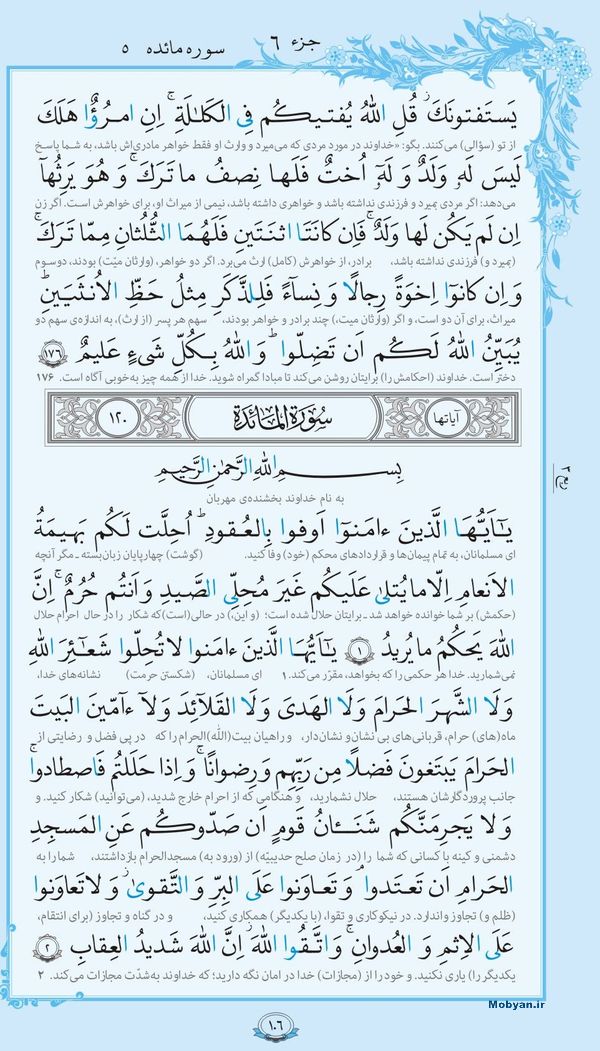 جزء ۶
سوره مائده ۵
يَستَفتونَكَ ۚ قُلِ اللهُ يُفتيكُم فِى الكَلالَةِ ۚ اِنِ امرُؤٌا هَلَكَ
از تو (سؤالی) می‌کنند. بگو: «خداوند در مورد مردی که می‌میرد و وارث او فقط خواهر مادری‌اش باشد، به شما پاسخ
لَيسَ لَهُ وَلَدٌ وَلَهُ اُختٌ فَلَها نِصفُ ما تَرَكَ ۚ وَهُوَ يَرِثُها
می‌دهد: اگر مردی بمیرد و فرزندی نداشته باشد و خواهری داشته باشد، نیمی از میراث او، برای خواهرش است. اگر زن
اِن لَم يَكُن لَها وَلَدٌ ۚ فَاِن كانَتَا اثنَتَينِ فَلَهُمَا الثُّلُثانِ مِمّا تَرَكَ ۚ
(بمیرد و) فرزندی نداشته باشد، برادر، از خواهرش (کامل) ارث می‌برد. اگر دو خواهر، (وارثان میّت) بودند، دوسوم
وَاِن كانوا اِخوَةً رِجالًا وَنِساءً فَلِلذَّكَرِ مِثلُ حَظِّ الاُنثَيَينِ ۗ
میراث، برای آن دو است، و اگر (وارثان میت،) چند برادر و خواهر بودند، سهم هر پسر (از ارث)، به اندازه‌ی سهم دو
يُبَيِّنُ اللهُ لَكُم اَن تَضِلّوا ۗ وَاللهُ بِكُلِّ شَىءٍ عَليمٌ ۱۷۶
دختر است. خداوند (احکامش را) برایتان روشن می‌کند تا مبادا گمراه شوید. خدا از همه چیز به‌خوبی آگاه است. ۱۷۶
آیاتها سُورَةُ المائِدَةِ ۱۲۰
بِسمِ اللهِ الرَّحمٰنِ الرَّحيمِ
به نام خداوند بخشنده‌ی مهربان
يٰاَيُّهَا الَّذينَ ءامَنوا اَوفوا بِالعُقودِ ۚ اُحِلَّت لَكُم بَهيمَةُ
ای مسلمانان، به تمام پیمان‌ها و قراردادهای محکم (خود) وفا کنید. (گوشت) چهارپایان زبان‌بسته ـ مگر آنچه
الاَنعامِ اِلّا ما يُتلىٰ عَلَيكُم غَيرَ مُحِلِّى الصَّيدِ وَاَنتُم حُرُمٌ ۗ اِنَّ
(حکمش) بر شما خوانده خواهد شد ـ برایتان حلال شده است؛ (و این،) در حالی (است) که شکار را در حال احرام حلال
اللهَ يَحكُمُ ما يُريدُ ۱ يٰاَيُّهَا الَّذينَ ءامَنوا لا تُحِلّوا شَعائِرَ اللهِ
نمی‌شمارید. خدا هر حکمی را که بخواهد، مقرّر می‌کند. ۱ ای مسلمانان، (شکستن حرمت) نشانه‌های خدا،
وَلَا الشَّهرَ الحَرامَ وَلَا الهَدىَ وَلَا القَلائِدَ وَلا ءامّينَ البَيتَ
ماه(های) حرام، قربانی‌های بی‌نشان و نشان‌دار، و راهیان بیت(الله)الحرام را که در پی فضل و رضایتی از
الحَرامَ يَبتَغونَ فَضلًا مِن رَبِّهِم وَرِضوانًا ۚ وَاِذا حَلَلتُم فَاصطادوا ۚ
جانب پروردگارشان هستند، حلال نشمارید، و هنگامی که از احرام خارج شدید، (می‌توانید) شکار کنید. و
وَلا يَجرِمَنَّكُم شَنَـٔانُ قَومٍ اَن صَدّوكُم عَنِ المَسجِدِ
دشمنی و کینه با کسانی که شما را (در زمان صلح حدیبیّه) از (ورود به) مسجدالحرام بازداشتند، شما را به
الحَرامِ اَن تَعتَدوا ۘ وَتَعاوَنوا عَلَى البِرِّ وَالتَّقوىٰ ۖ وَلا تَعاوَنوا
(ظلم و) تجاوز واندارد. در نیکوکاری و تقوا، (با یکدیگر) همکاری کنید، و در گناه و تجاوز (برای انتقام،
عَلَى الاِثمِ وَالعُدوانِ ۚ وَاتَّقُوا اللهَ ۖ اِنَّ اللهَ شَديدُ العِقابِ ۲
یکدیگر را) یاری نکنید. و خود را از (مجازات) خدا در امان نگه دارید؛ که خداوند به‌شدّت مجازات می‌کند. ۲
Mobyan.ir
۱۰۶